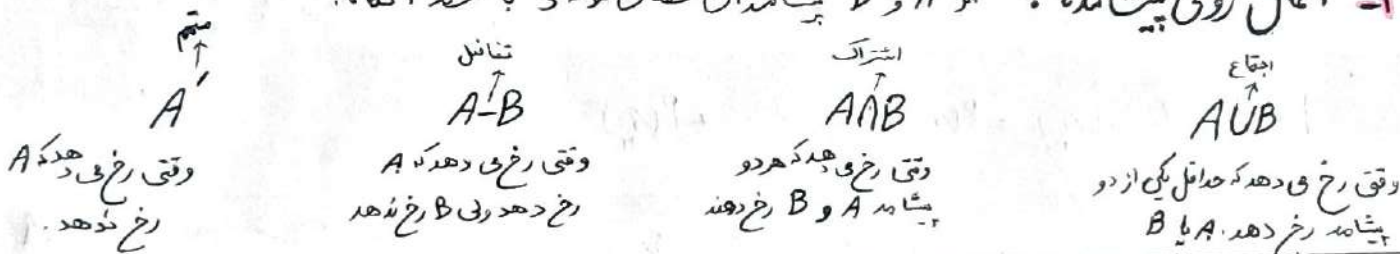 اعمال روی پیشامدها:
اجتماع
A∪B
وقتی رخ می دهد که حداقل یکی از دو
پیشامد رخ دهد. A یا B
اشتراک
A∩B
وقتی رخ می دهد که هر دو
پیشامد A و B رخ دهند
تفاضل
A-B
وقتی رخ می دهد که A
رخ دهد ولی B رخ ندهد
متمم
A′
وقتی رخ می دهد که A
رخ ندهد.